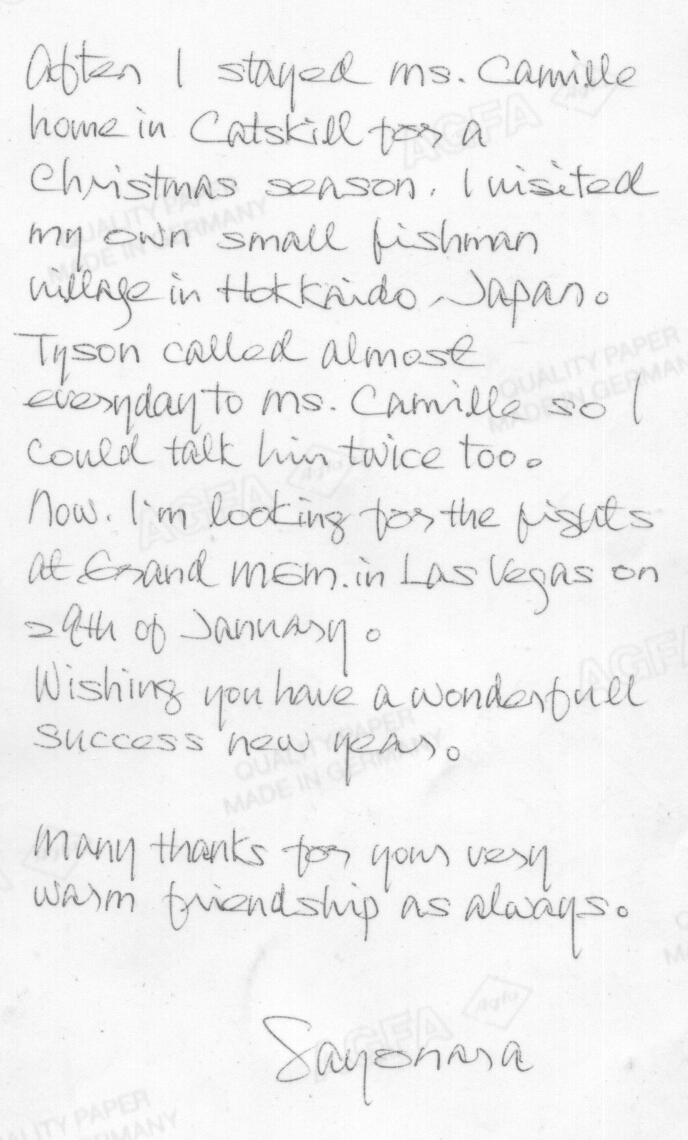 After I stayed ms. Camille
home in Catskill for a
Christmas season. I visited
my own small fishman
village in Hokkaido, Japan.
Tyson called almost
everyday to ms. Camille so I
could talk him twice too.
Now. I'm looking for the fights
at Grand MGM. in Las Vegas on
29th of January.
Wishing you have a wonderfull
success new year.
Many thanks for your very
warm friendship as always.
Sayonara
AGFA
QUALITY PAPER
MADE IN GERMANY
QUALITY PAPER
MADE IN GERMANY
AGFA
Agfa
AGFA
QUALITY PAPER
MADE IN GERMANY
AGFA
Agfa